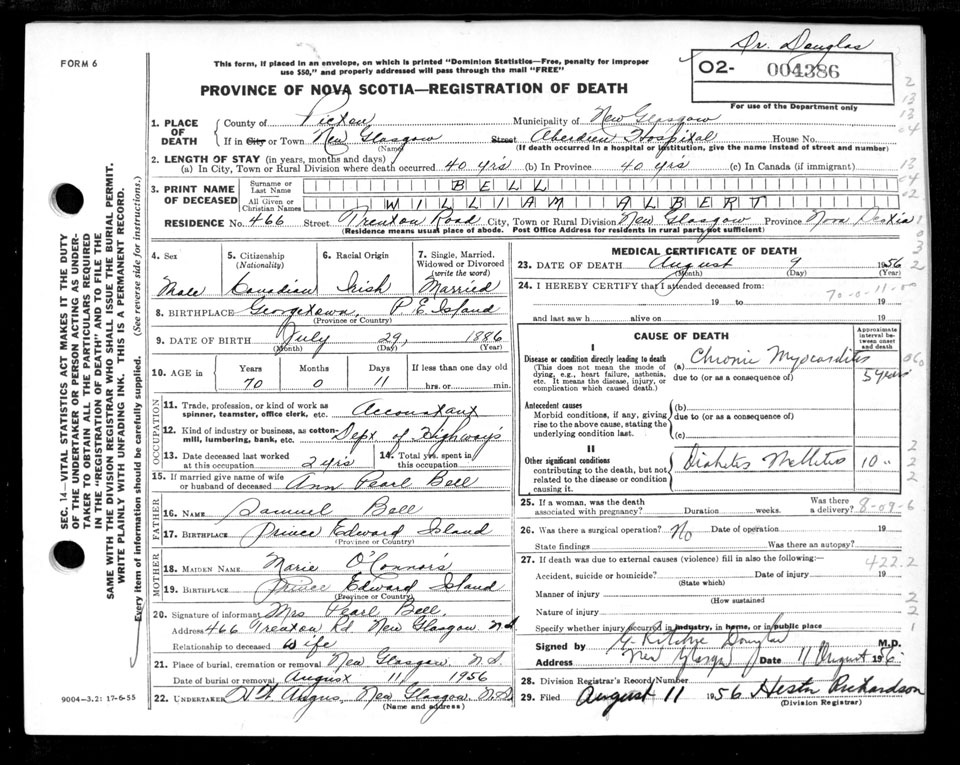 Dr. Douglas
FORM 6
This form, if placed in an envelope, on which is printed "Dominion Statistics—Free, penalty for improper
use $50," and properly addressed will pass through the mail "FREE"
O2- 004386
For use of the Department only
PROVINCE OF NOVA SCOTIA—REGISTRATION OF DEATH
1. PLACE OF DEATH
County of Pictou Municipality of New Glasgow
If in City or Town New Glasgow Street Aberdeen Hospital House No.
(Name) (If death occurred in a hospital or institution, give the name instead of street and number)
2. LENGTH OF STAY (in years, months and days)
(a) In City, Town or Rural Division where death occurred 40 yrs (b) In Province 40 yrs (c) In Canada (if immigrant)
3. PRINT NAME OF DECEASED
Surname or Last Name BELL
All Given or Christian Names WILLIAM ALBERT
RESIDENCE No. 466 Street Trenton Road City, Town or Rural Division New Glasgow Province Nova Scotia
(Residence means usual place of abode. Post Office Address for residents in rural parts not sufficient)
4. Sex
Male
5. Citizenship
(Nationality)
Canadian
6. Racial Origin
Irish
7. Single, Married,
Widowed or Divorced
(write the word)
Married
8. BIRTHPLACE Georgetown, P.E Island
(Province or Country)
9. DATE OF BIRTH July 29, 1886
(Month) (Day) (Year)
10. AGE in
Years Months Days If less than one day old
70 0 11 hrs. or min.
OCCUPATION
11. Trade, profession, or kind of work as
spinner, teamster, office clerk, etc. Accountant
12. Kind of industry or business, as cotton-
mill, lumbering, bank, etc. Dept of Highways
13. Date deceased last worked
at this occupation 2 yrs
14. Total yrs. spent in
this occupation
15. If married give name of wife
or husband of deceased Ann Pearl Bell
FATHER
16. NAME Samuel Bell
17. BIRTHPLACE Prince Edward Island
(Province or Country)
MOTHER
18. MAIDEN NAME Marie O'Connors
19. BIRTHPLACE Prince Edward Island
(Province or Country)
20. Signature of informant Mrs Pearl Bell.
Address 466 Trenton Rd. New Glasgow N.S
Relationship to deceased wife
21. Place of burial, cremation or removal New Glasgow. N.S.
Date of burial or removal August 11 1956
22. UNDERTAKER Angus, New Glasgow, N.S.
(Name and address)
MEDICAL CERTIFICATE OF DEATH
23. DATE OF DEATH August 9 1956
(Month) (Day) (Year)
24. I HEREBY CERTIFY that I attended deceased from:
70-0-11-00
19 to 19
and last saw h alive on 19
CAUSE OF DEATH
Approximate
interval be-
tween onset
and death
I
Disease or condition directly leading to death
(This does not mean the mode of
dying, e.g., heart failure, asthenia,
etc. It means the disease, injury, or
complication which caused death.)
(a) Chronic Myocarditis
due to (or as a consequence of)
5 years
Antecedent causes
Morbid conditions, if any, giving
rise to the above cause, stating the
underlying condition last.
(b)
due to (or as a consequence of)
(c)
II
Other significant conditions
contributing to the death, but not
related to the disease or condition
causing it.
Diabetes Mellitus 10 "
25. If a woman, was the death
associated with pregnancy? Duration weeks. Was there
a delivery? 8-09-6
26. Was there a surgical operation? No Date of operation 19
State findings Was there an autopsy?
27. If death was due to external causes (violence) fill in also the following:—
422.2
Accident, suicide or homicide? Date of injury 19
(State which)
Manner of injury
(How sustained
Nature of injury
Specify whether injury occurred in industry, in home, or in public place
Signed by G. Ritchie Douglas M.D.
Address New Glasgow Date 11 August 1956.
28. Division Registrar's Record Number
29. Filed August 11 1956 Hester Richardson
(Division Registrar)
9004—3.2: 17-6-55
SEC. 14—VITAL STATISTICS ACT MAKES IT THE DUTY
OF THE UNDERTAKER OR PERSON ACTING AS UNDER-
TAKER TO OBTAIN ALL THE PARTICULARS REQUIRED
IN THE "REGISTRATION OF DEATH" AND TO FILE THE
SAME WITH THE DIVISION REGISTRAR WHO SHALL ISSUE THE BURIAL PERMIT.
WRITE PLAINLY WITH UNFADING INK. THIS IS A PERMANENT RECORD.
Every item of information should be carefully supplied. (See reverse side for instructions.)